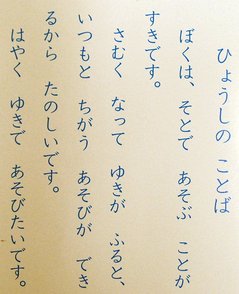 ひょうしの ことば
ぼくは、そとで あそぶ ことが
すきです。
さむく なって ゆきが ふると、
いつもと ちがう あそびが でき
るから たのしいです。
はやく ゆきで あそびたいです。